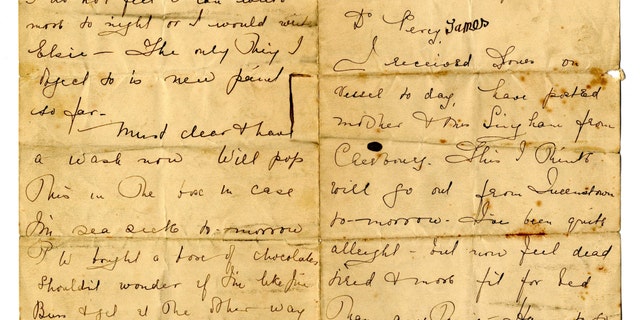 more to night or I would write
Elsie — The only Thing I
object to is new paint
so far —
Must clear & have
a wash now Will pop
This in The box in case
I'm sea sick to-morrow
P W bought a box of chocolates
Shouldn't wonder if I'm like Jim
& get it The other way
Dr Percy James
I received Yours on
Vessel to day, have posted
mother & Miss Lingham from
This I Think
will go out from Queenstown
to-morrow. I've been quite
allright - but now feel dead
tired & more fit for bed
Than